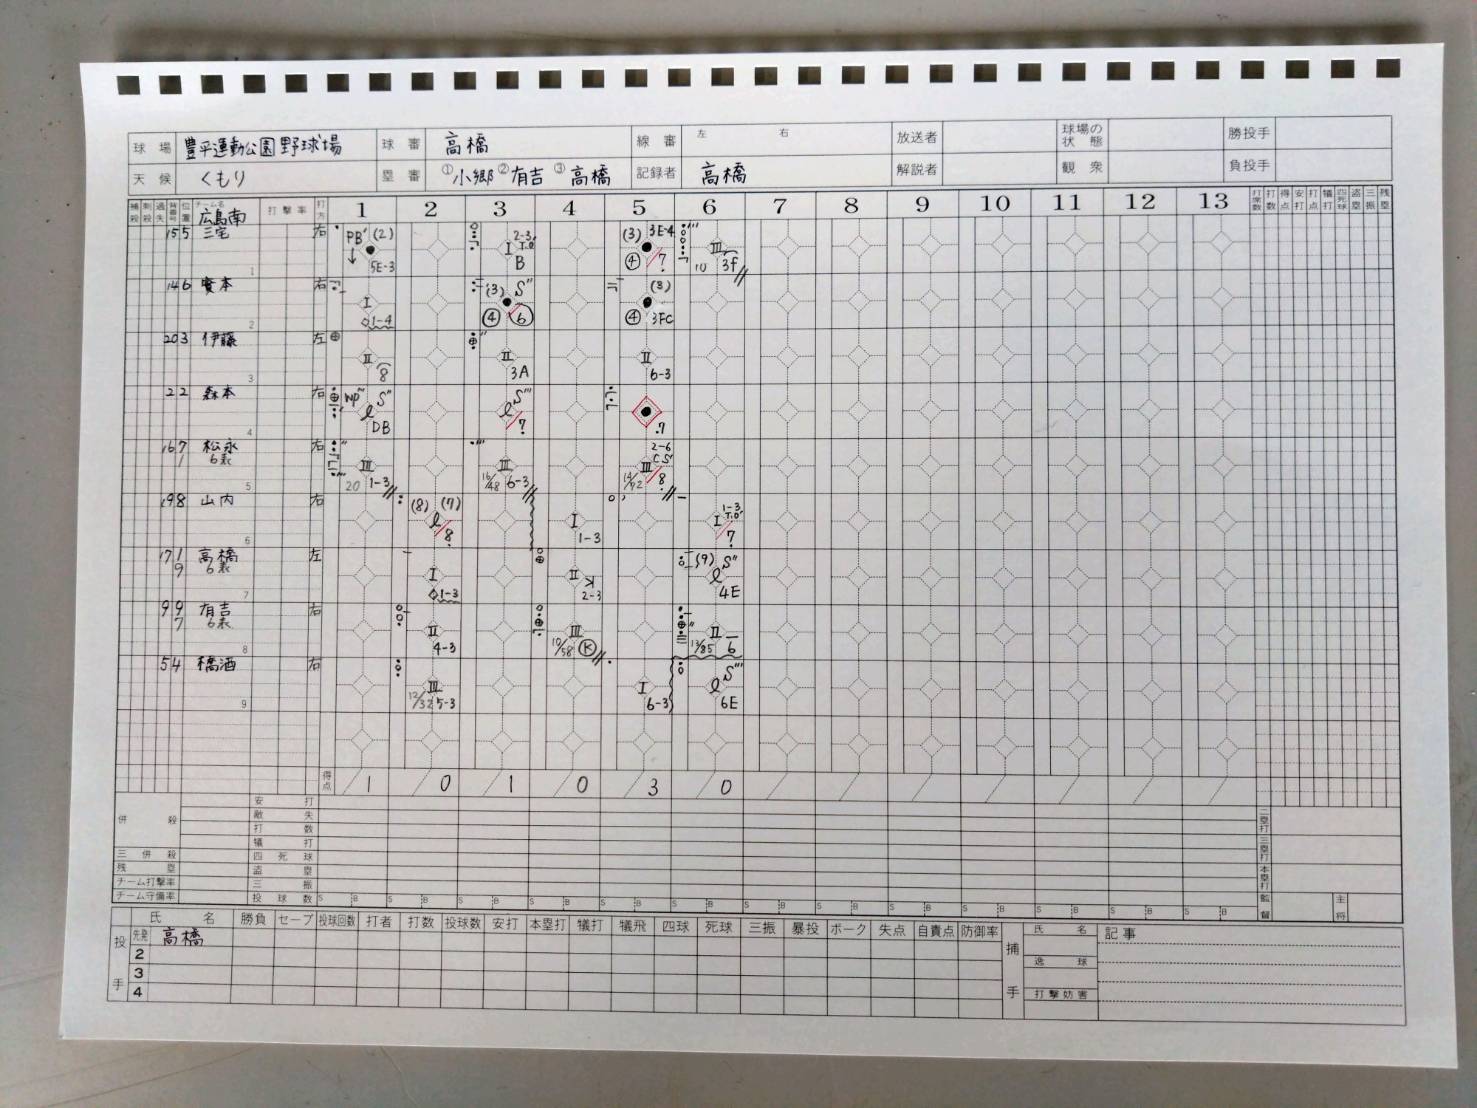 球場 豊平運動公園野球場 球審 高橋 線審 左 右 放送者 球場の状態 勝投手
天候 くもり 塁審 ①小郷 ②有吉 ③高橋 記録者 高橋 解説者 観衆 負投手
補殺 刺殺 過失 背番号 位置 チーム名 広島南 打撃率 打方 1 2 3 4 5 6 7 8 9 10 11 12 13 打席数 打数 得点 安打 打点 犠打 四死球 盗塁 三振 残塁
15 5 三宅 右 PB' (2) 5E-3 I 2-3' T.O B (3) 3E-4 ④ 7 III 10 3f
1
14 6 實本 右 I 1-4 (3) S'' ④ ⑥ (3) ④ 3FC
2
20 3 伊藤 左 II 8 II 3A II 6-3
3
2 2 森本 右 WP''' S'' DB S''' 7 7
4
16 7 松永 右 III 20 1-3 III 16/48 6-3 2-6 CS' III 14/72 8
1 6表
5
19 8 山内 右 (8) (7) 8 I 1-3 I 1-3 T.O' 7
6
17 1 高橋 左 I 1-3 II K 2-3 (9) S'' 4E
9 6表
7
9 9 有吉 右 II 4-3 III 10/58 K II 13/85 6
7 6表
8
5 4 橋酒 右 III 12/32 5-3 I 6-3 S''' 6E
9
得点 1 0 1 0 3 0
安打
敵失
併殺 打数 二塁打
犠打
三併殺 四死球 三塁打
残塁 盗塁
チーム打撃率 三振 本塁打
チーム守備率 投球数 S B S B S B S B S B S B S B S B S B S B S B S B S B 監督 主将
投手 氏名 勝負 セーブ 投球回数 打者 打数 投球数 安打 本塁打 犠打 犠飛 四球 死球 三振 暴投 ボーク 失点 自責点 防御率 捕手 氏名 記事
先発 高橋
2 逸球
3
4 打撃妨害